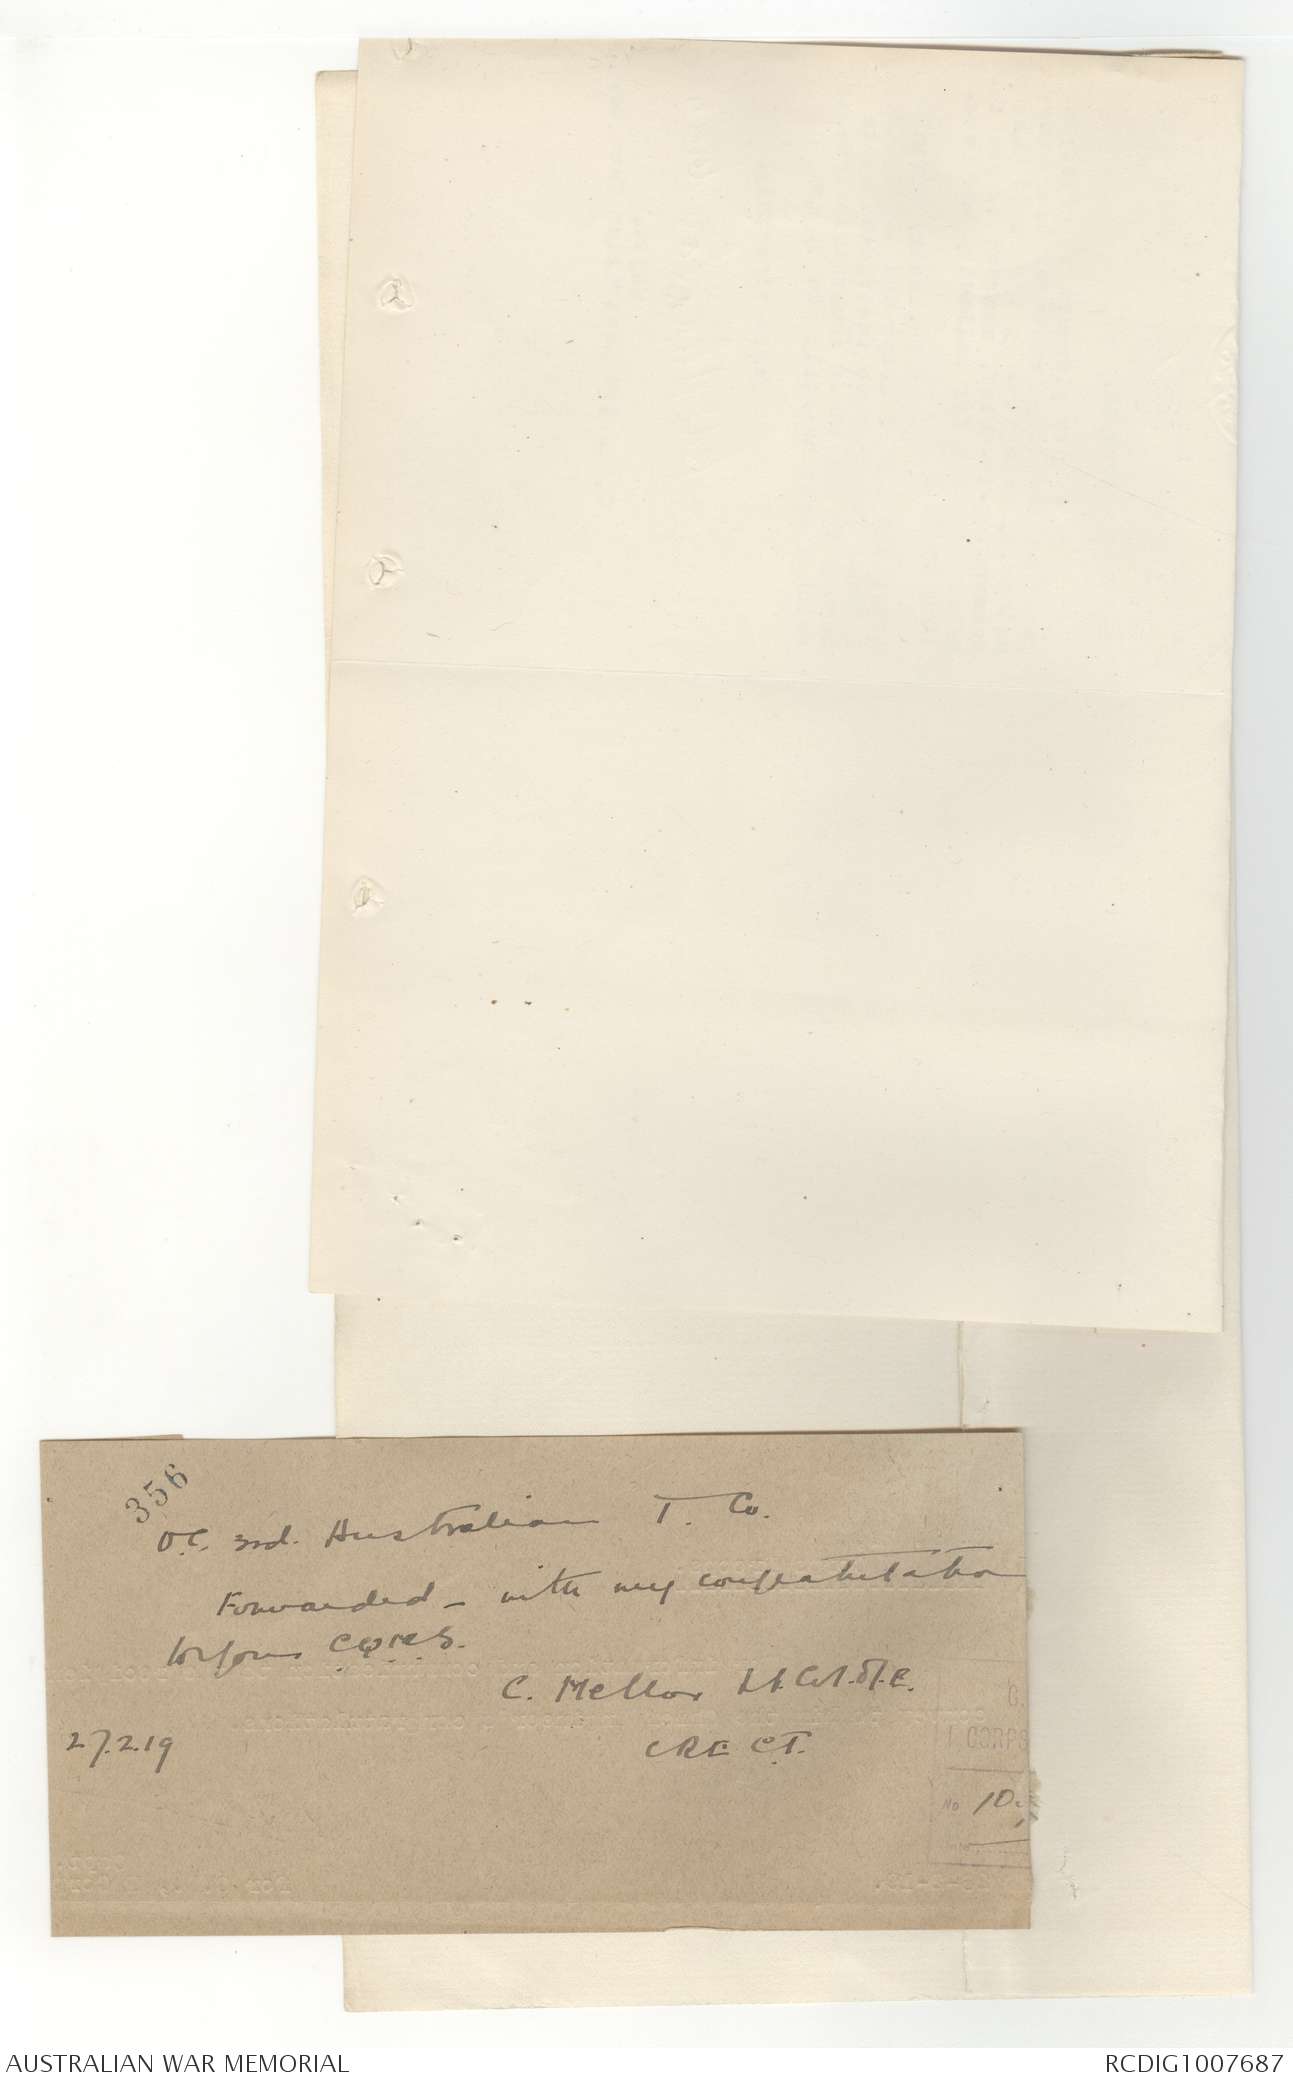 356
O.C. 3rd. Australian T. Co.
Forwarded - with my congratulation
to your C.Q.M.S.
C. Mellor Lt. Col. R.E.
27.2.19
CRE C.T.
CORPS
No 10
AUSTRALIAN WAR MEMORIAL
RCDIG1007687